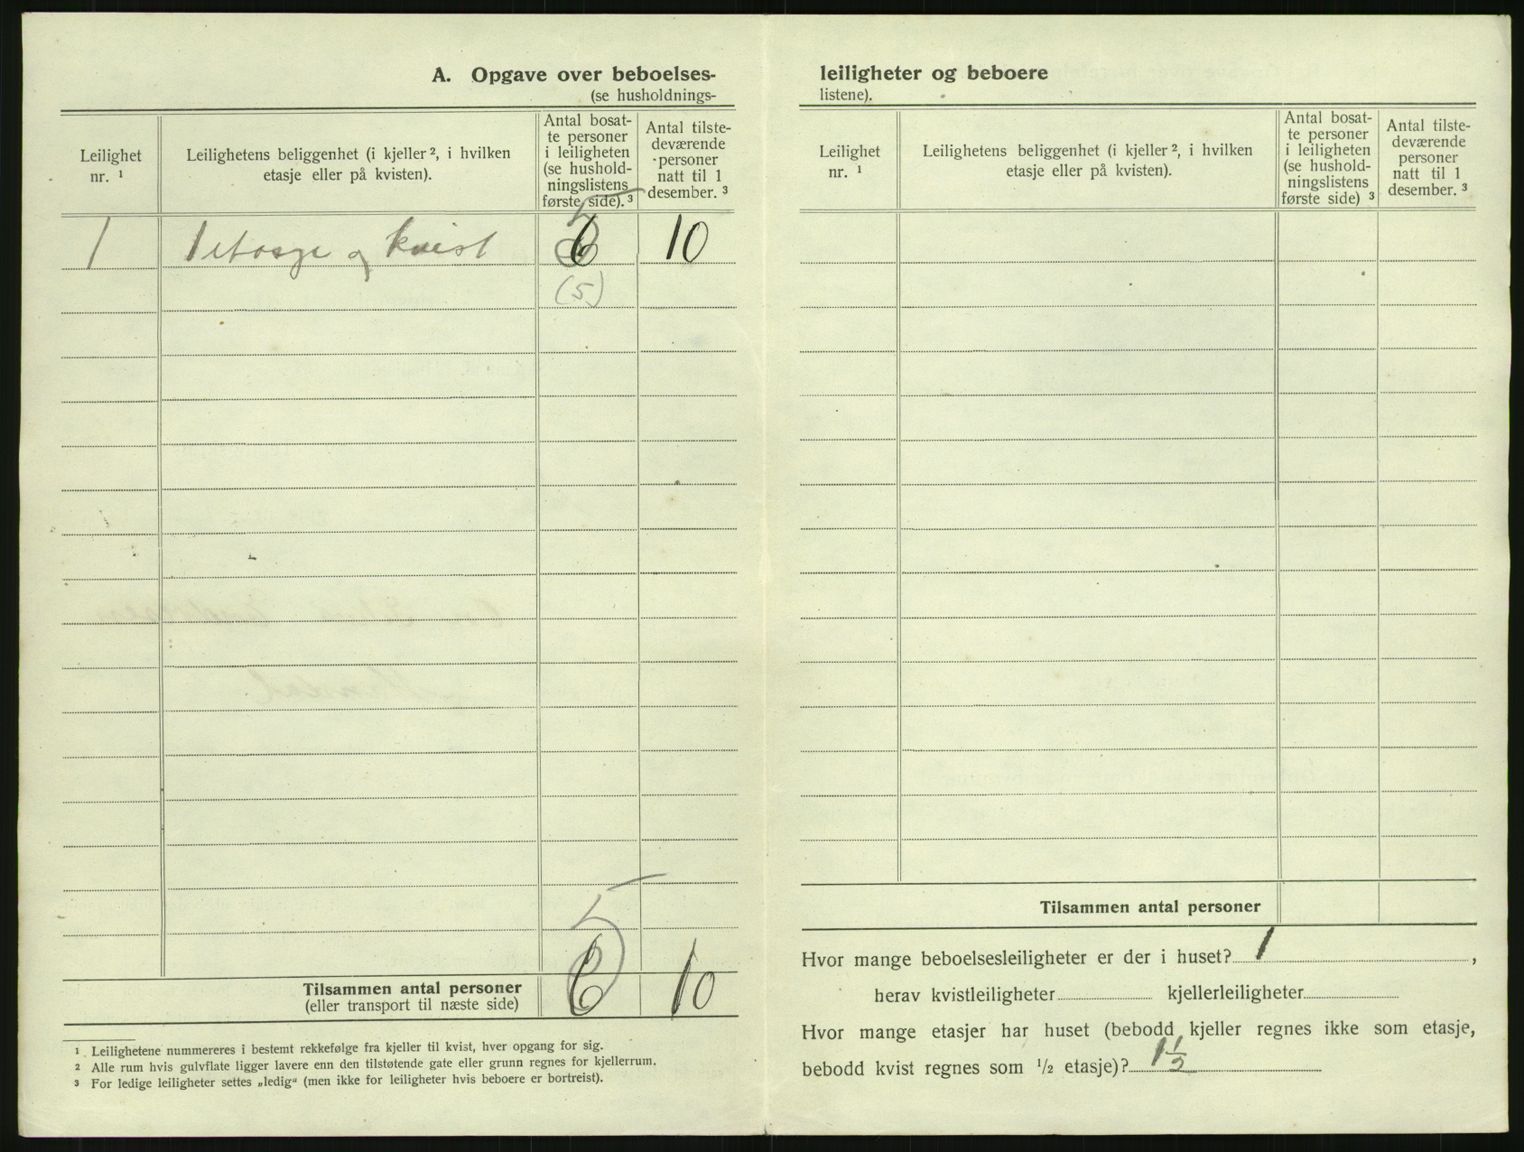 A. Opgave over beboelses-
(se husholdnings-
Leilighet nr. ¹
Leilighetens beliggenhet (i kjeller ², i hvilken etasje eller på kvisten).
Antal bosat-
te personer
i leiligheten
(se hushold-
ningslistens
første side). ³
Antal tilste-
deværende
personer
natt til 1
desember. ³
1
1 etasge og kvist
6
5
10
(5)
5
Tilsammen antal personer
6
10
(eller transport til næste side)
¹ Leilighetene nummereres i bestemt rekkefølge fra kjeller til kvist, hver opgang for sig.
² Alle rum hvis gulvflate ligger lavere enn den tilstøtende gate eller grunn regnes for kjellerrum.
³ For ledige leiligheter settes „ledig“ (men ikke for leiligheter hvis beboere er bortreist).
leiligheter og beboere
listene).
Leilighet nr. ¹
Leilighetens beliggenhet (i kjeller ², i hvilken etasje eller på kvisten).
Antal bosat-
te personer
i leiligheten
(se hushold-
ningslistens
første side) ³
Antal tilste-
deværende
personer
natt til 1
desember. ³
Tilsammen antal personer
Hvor mange beboelsesleiligheter er der i huset? 1 ,
herav kvistleiligheter kjellerleiligheter
Hvor mange etasjer har huset (bebodd kjeller regnes ikke som etasje,
bebodd kvist regnes som ½ etasje)? 1½